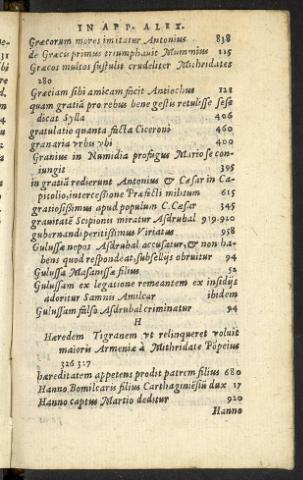 IN APP. ALEX.
Græcorum mores imitatur Antonius 838
de Græcis primus triumphauit Mummius 125
Græcos multos sustulit crudeliter Mithridates
280
Græciam sibi amicam facit Antiochus 121
quam gratiā pro rebus bene gestis retulisse sese
dicat Sylla 406
gratulatio quanta facta Ciceroni 460
granaria vrbis vbi 400
Granius in Numidia profugus Mario se con-
iungit 395
in gratiā redierunt Antonius & Cæsar in Ca-
pitolio, intercessione Præfecti militum 615
gratiosissimus apud populum C. Cæsar 345
grauitatē Scipionis miratur Asdrubal 919.920
gubernandi peritissimus Viriatus 958
Gulussæ nepos Asdrubal accusatur, & non ha-
bens quod respondeat, subsellijs obruitur 94
Gulussa Masanissæ filius 52
Gulussam ex legatione remeantem ex insidijs
adoritur Samnis Amilcar ibidem
Gulussam falso Asdrubal criminatur 94
H
Hæredem Tigranem vt relinqueret voluit
maioris Armeniæ à Mithridate Pōpeius
326 327
hæreditatem appetens prodit patrem filius 680
Hanno Bomilcaris filius Carthaginēsiū dux 17
Hanno captus Martio deditur 920
Hanno